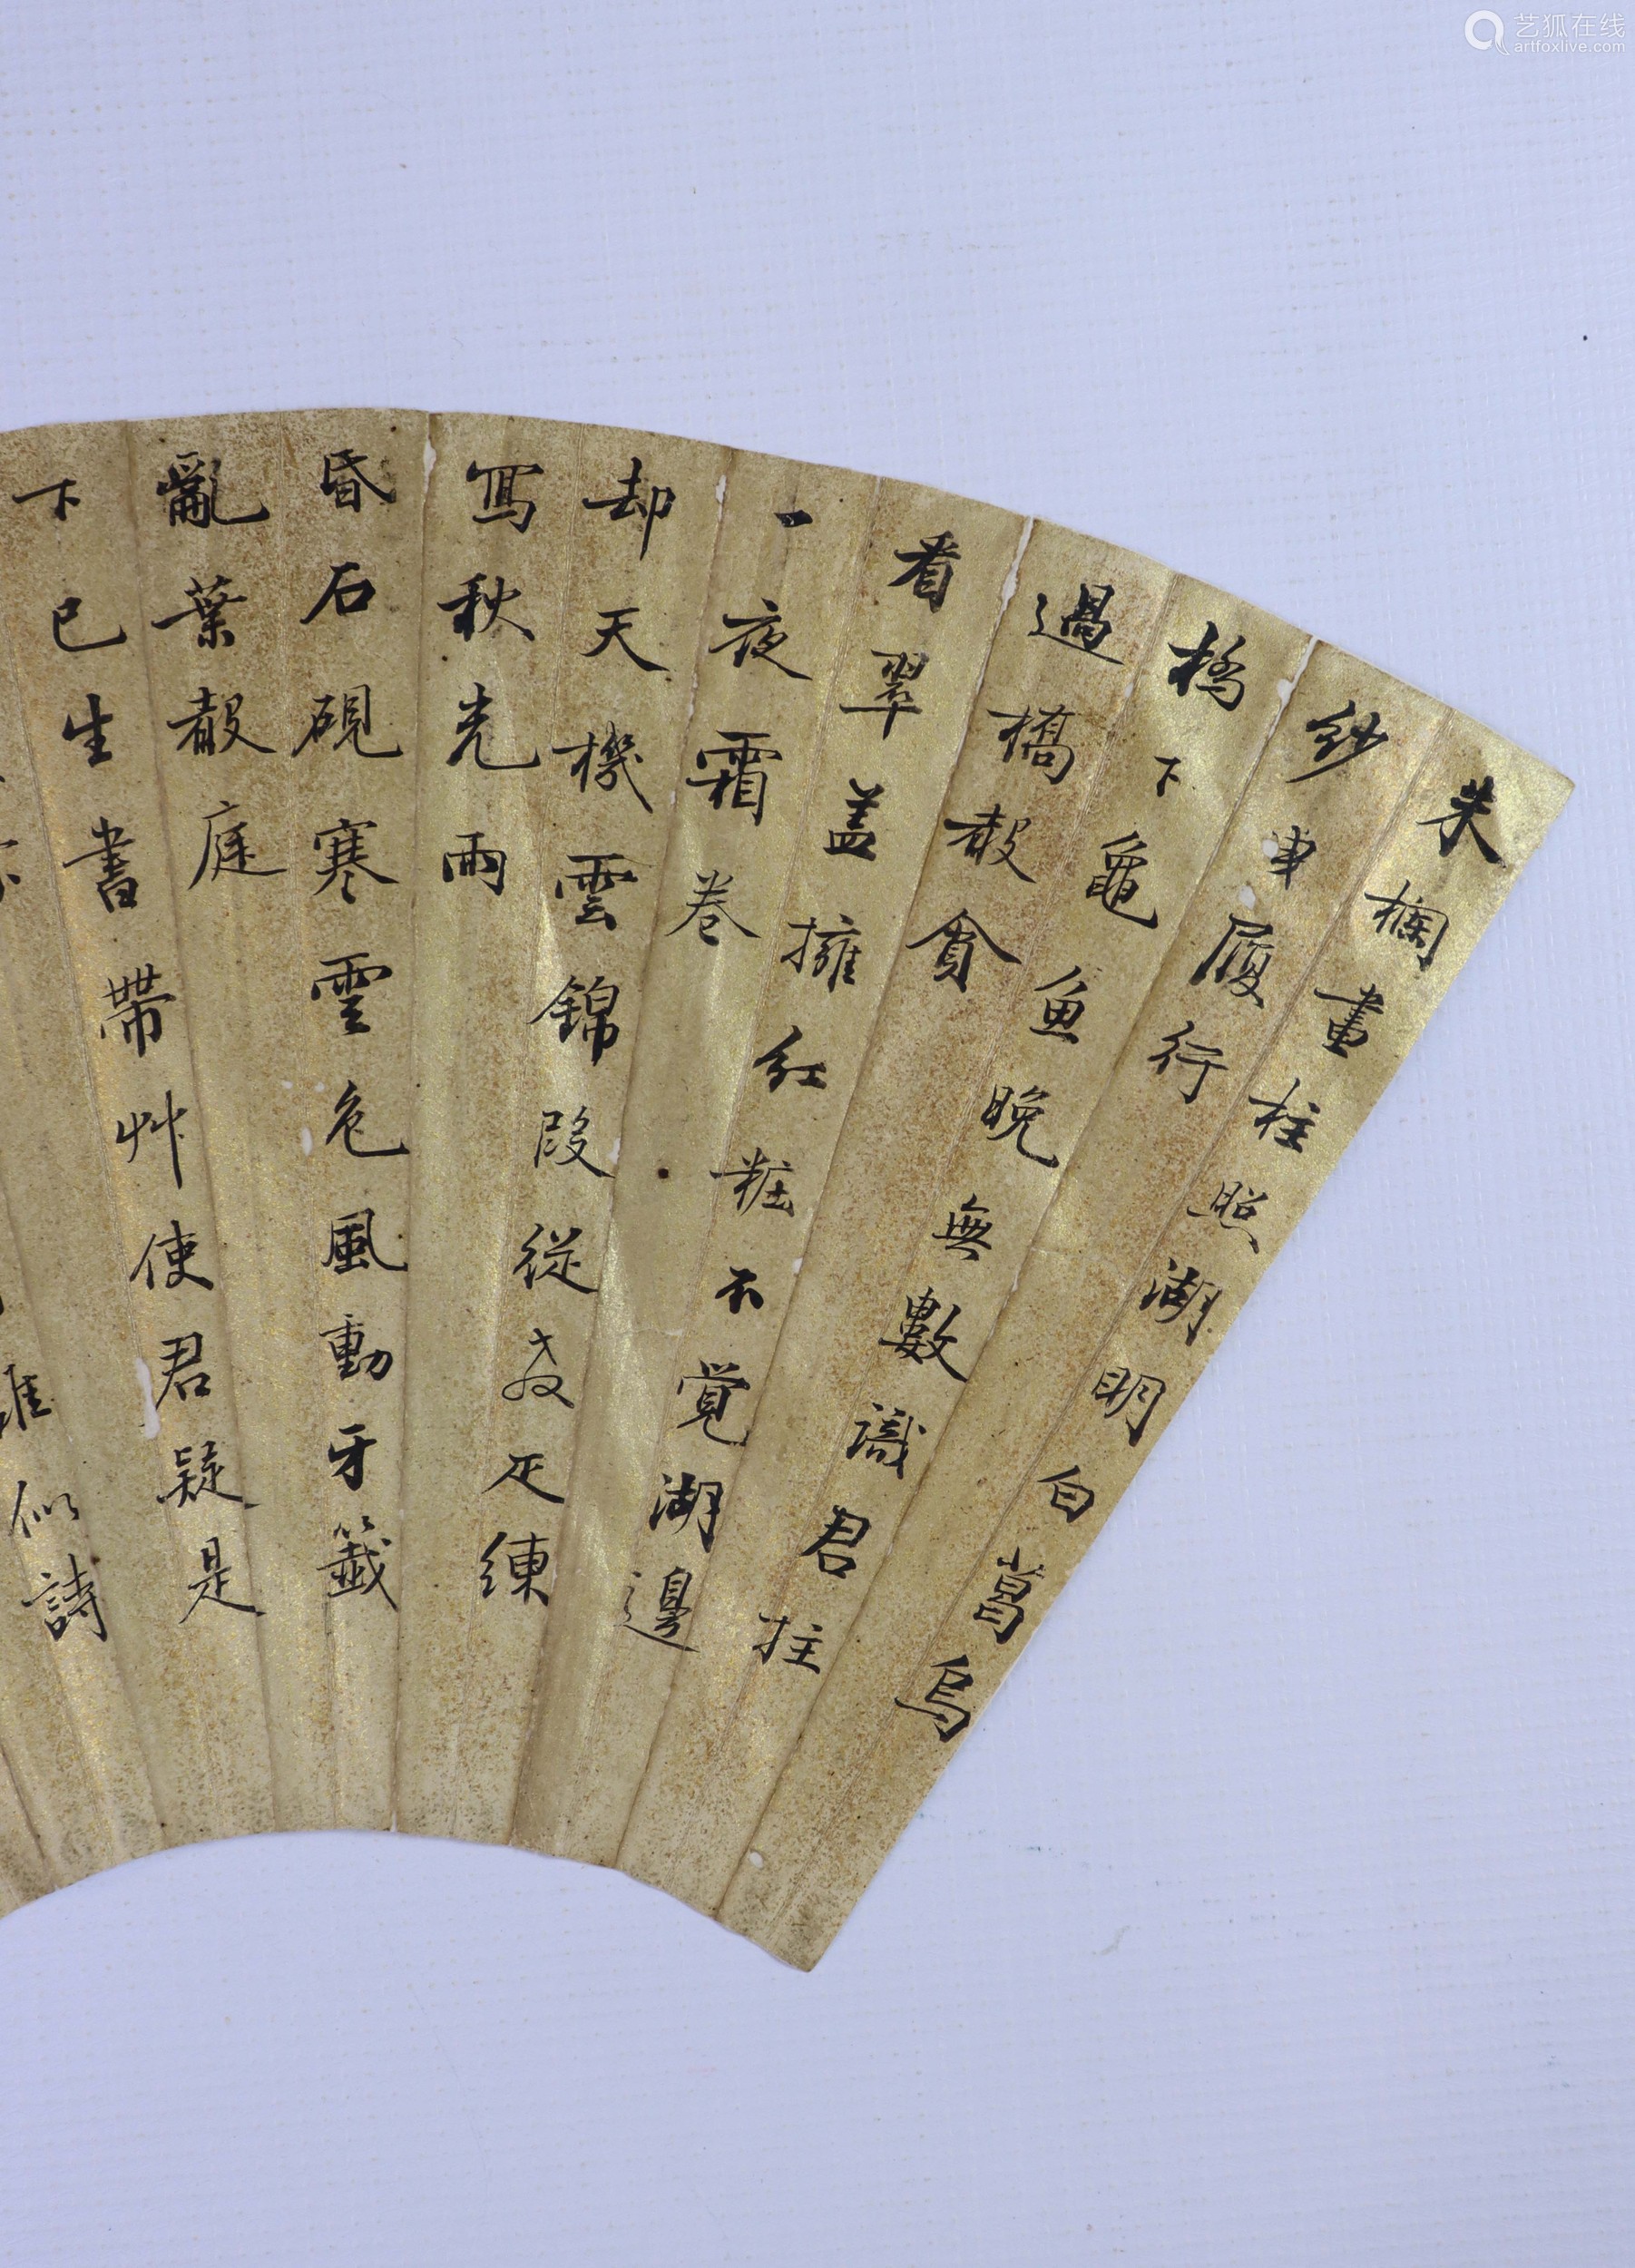 朱欄畫柱照湖明白葛烏
紗曳履行
橋下龜魚晚無數識君拄
過橋聲貪
看翠盖擁紅粧不覺湖邊
一夜霜卷
却天機雲錦段從教匹練
寫秋光雨
昏石硯寒雲色風動牙籤
亂葉聲庭
下已生書帶艸使君疑是
似詩
艺狐在线
artfoxlive.com